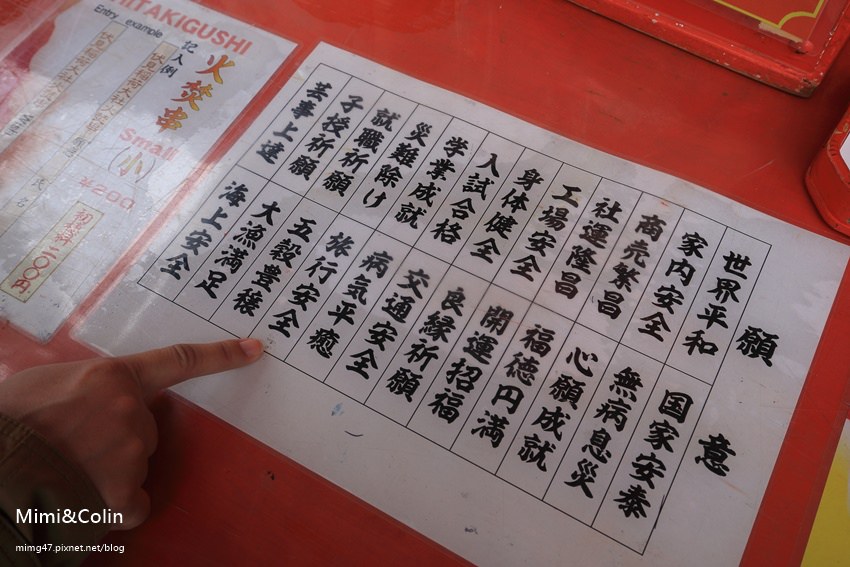 願意
世界平和
家内安全
商売繁昌
社運隆昌
工場安全
身体健全
入試合格
学業成就
災難除け
就職祈願
子授祈願
芸事上達
国家安泰
無病息災
心願成就
福徳円満
開運招福
良縁祈願
交通安全
病気平癒
旅行安全
五穀豊穣
大漁満足
海上安全
ITAKIGUSHI
Entry example
記入例
火焚串
Small
(小)
¥200
初穂料二〇〇円
Mimi&Colin
mimg47.pixnet.net/blog